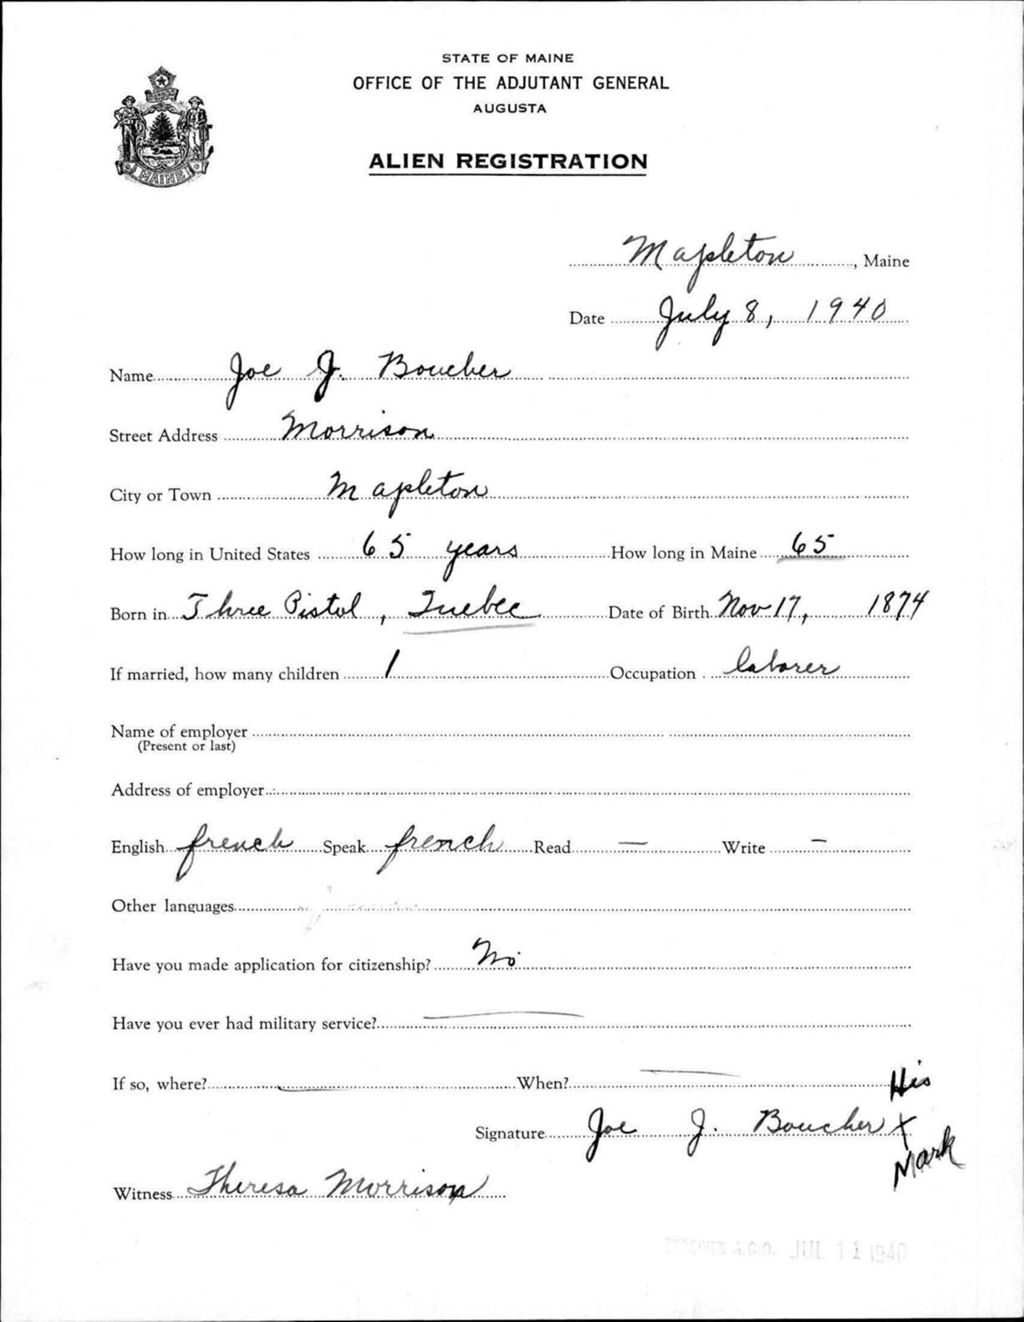 STATE OF MAINE
OFFICE OF THE ADJUTANT GENERAL
AUGUSTA
MAINE
ALIEN REGISTRATION
Mapleton, Maine
Date July 8, 1940
Name Joe J. Boucher
Street Address Morrison
City or Town Mapleton
How long in United States 65 years How long in Maine 65
Born in Three Pistol, Quebec Date of Birth Nov 17, 1874
If married, how many children 1 Occupation laborer
Name of employer
(Present or last)
Address of employer
English french Speak french Read — Write —
Other languages
Have you made application for citizenship? No
Have you ever had military service? —
If so, where? — When? — His
Signature Joe J. Boucher X
Mark
Witness Theresa Morrison
A.G.O. JUL 11 1940